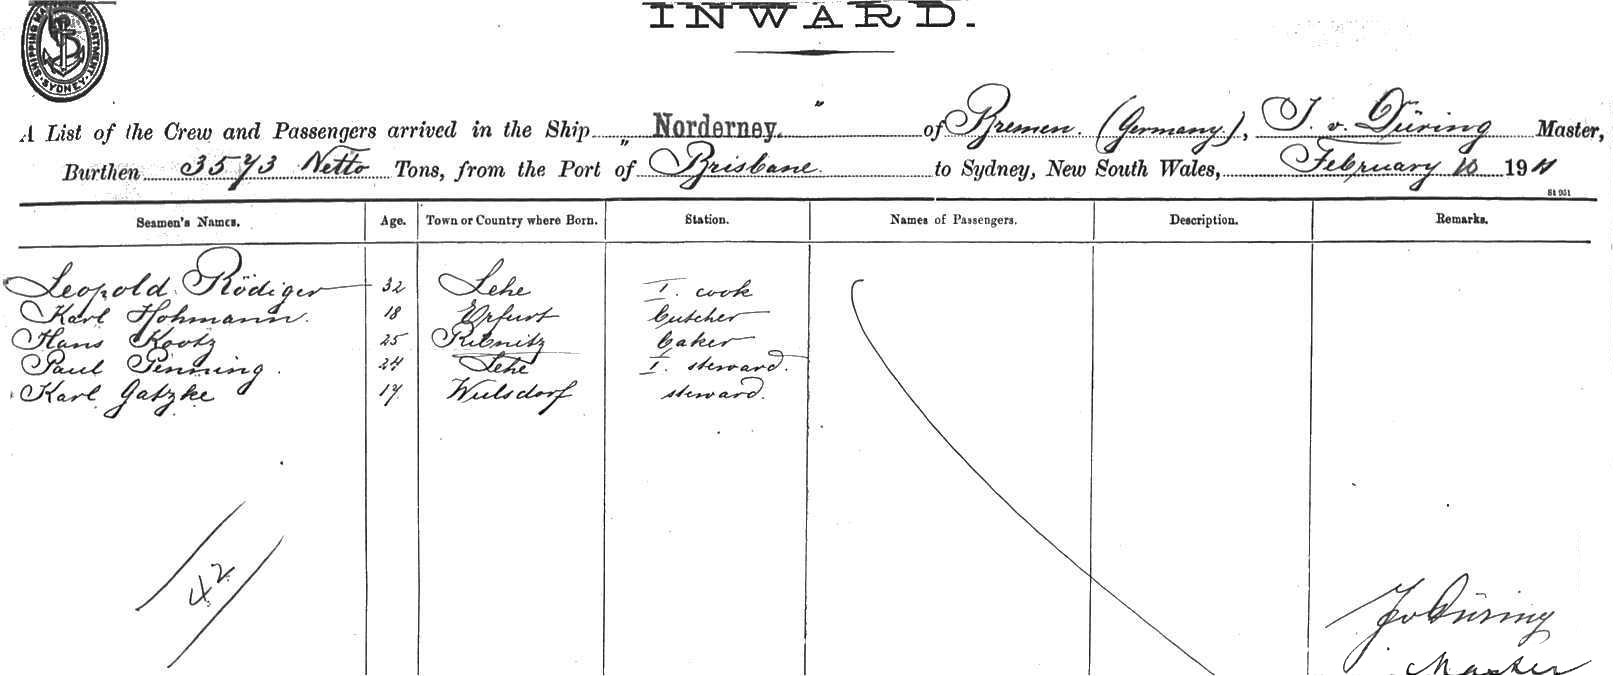 SHIPPING MASTERS DEPARTMENT
SYDNEY
INWARD.
A List of the Crew and Passengers arrived in the Ship " Norderney. " of Bremen. (Germany.), J. v. Düring Master,
Burthen 3573 Netto Tons, from the Port of Brisbane. to Sydney, New South Wales, February 10 1911
St 931
Seamen's Names. Age. Town or Country where Born. Station. Names of Passengers. Description. Remarks.
Leopold Rödiger 32 Lehe I. cook
Karl Hohmann. 18 Erfurt butcher
Hans Kootz 25 Ribnitz baker
Paul Penning. 24 Lehe I. steward.
Karl Gatzke 17 Wulsdorf steward.
42
JvDüring
Master